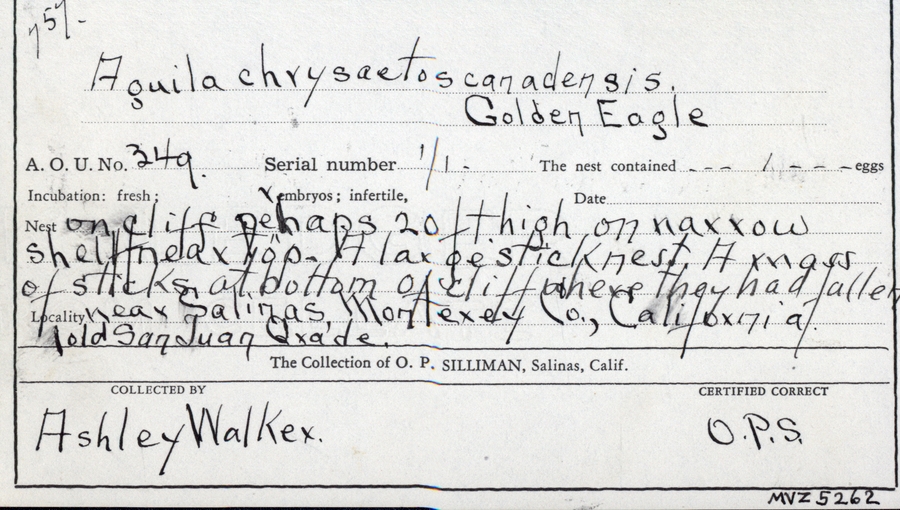 757-
Aquila chrysaetos canadensis.
Golden Eagle
A. O. U. No. 349. Serial number 1/1- The nest contained --- 1 --- eggs
Incubation: fresh; x embryos; infertile, Date
Nest on cliff pehaps 20 ft high on narrow
shelf near top. A large stick nest. A mass
of sticks at bottom of cliff where they had fallen
Locality near Salinas, Monterey Co., California.
old San Juan Grade.
The Collection of O. P. SILLIMAN, Salinas, Calif.
COLLECTED BY CERTIFIED CORRECT
Ashley Walker. O.P.S.
MVZ 5262